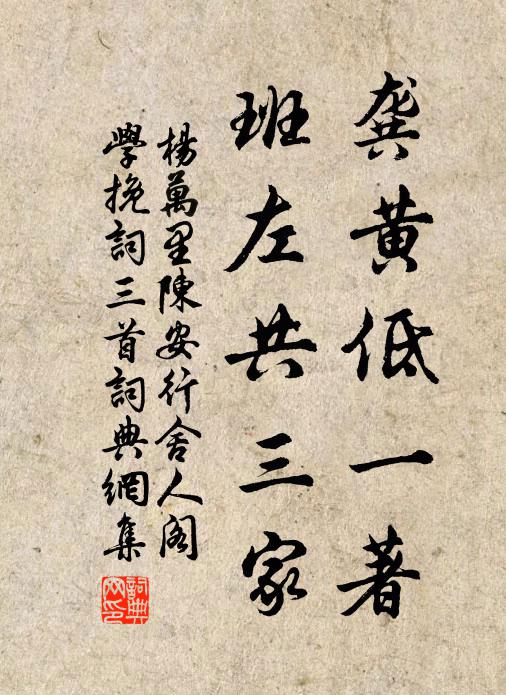 龔黃低一著
班左共三家
楊萬里陳安行舍人閣
學挽詞三首詞典網集
詞典網印